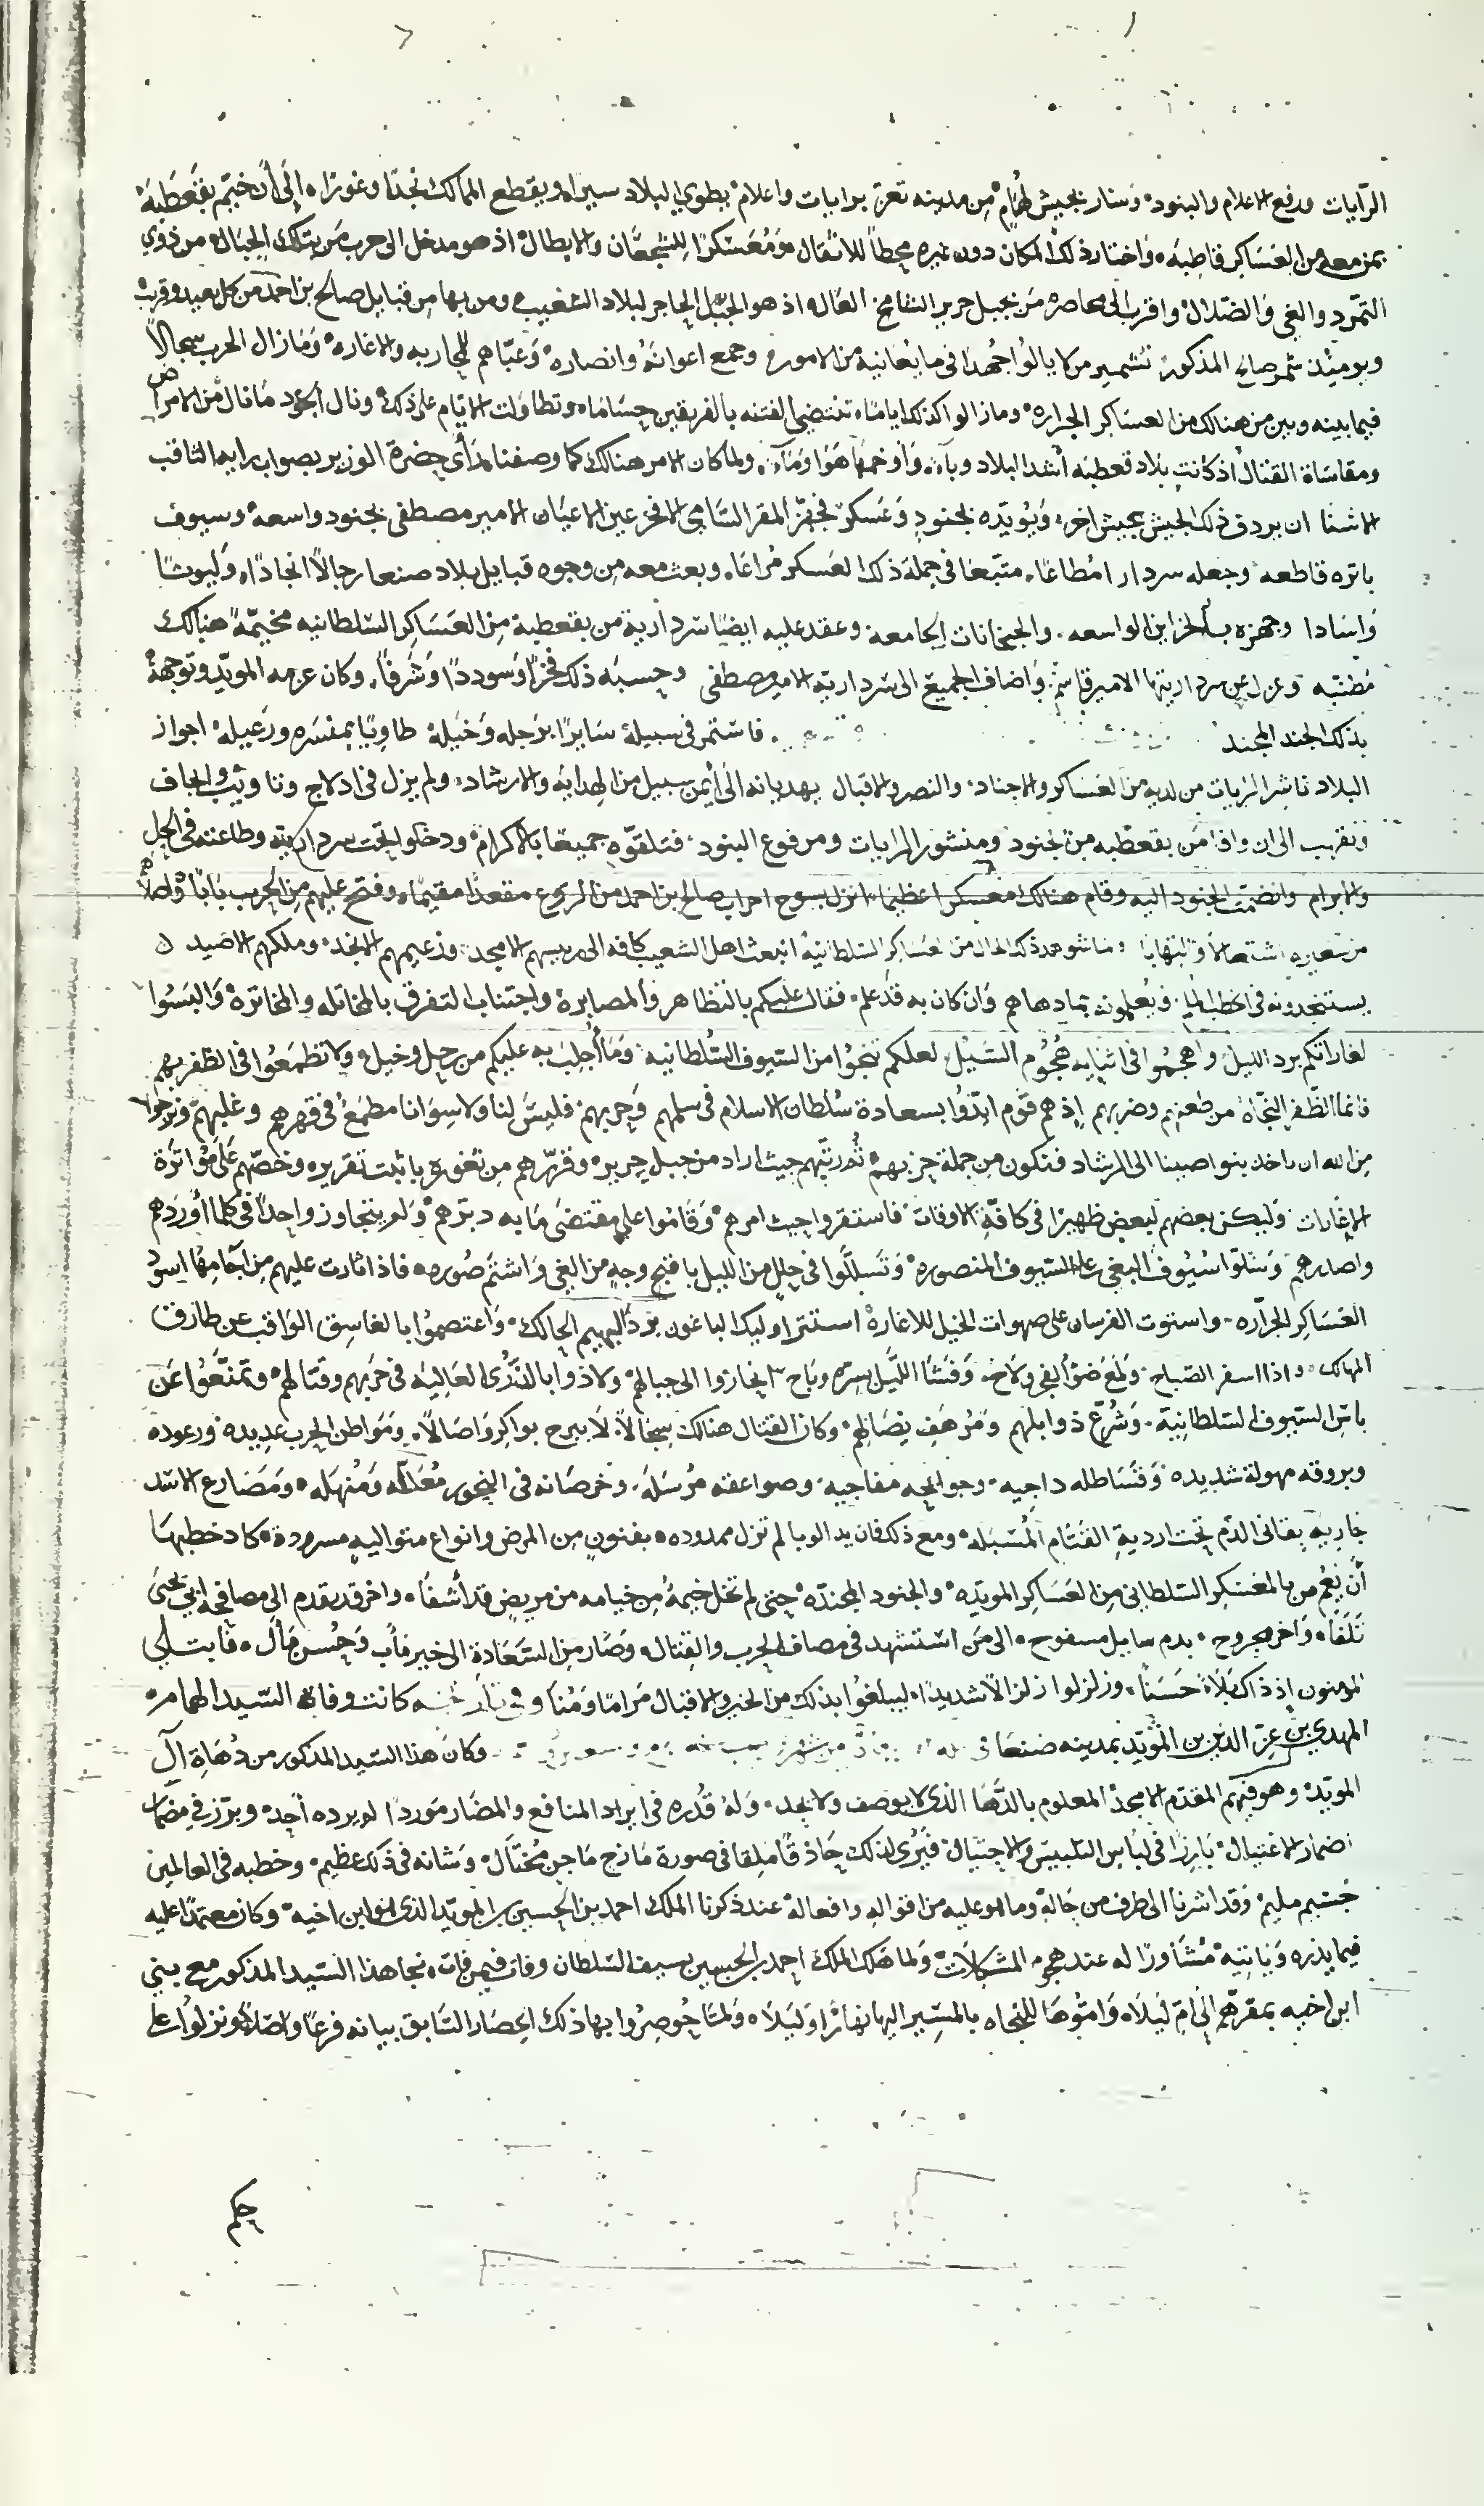 الرّايات ورفع الاعلام والبنود وسار بجيش لُهام من مدينه تعز برايات واعلام يطوي البلاد سيرا ويقطع الممالك نجدًا وغورًا الى أن خيّم بقعطبة
بمن معه من العَسَاكِر قاطبه واختار ذلك المكان دون غيره محطاً للاثقال ومُعَسْكرًا للشجعان والابطال اذ هو مدخل الى حرب من بتلك الجبال من ذوي
التمرّد والغي والضلال واقرب الى محاصرة من بجبل حرير الشامخ العال اذ هو الجبل الحاجز لبلاد الشعيب ومن بها من قبايل صالح بن احمد من كل بعيد وقريب
ويوميذ شمر صالح المذكور تشمير من لا يالوا جُهدا في ما يعانيه من الامور وجمع اعوانه وانصاره وعبّاهم للمحاربه والاغاره ومازال الحرب سجالاً
فيما بينه وبين من هنالك من العساكر الجراره ومازالوا كذلك اياما تنتضي الفتنه بالفريقين حسَامًا وتطاولت الايّام على ذلك ونال الجنود مانال من الامراض
ومقاساة القتال اذ كانت بلاد قعطبه أشد البلاد وبآء وأوخمها هوَا ومَآء ولما كان الامر هنالك كما وصفنا رأى حضرة الوزير بصواب رايه الثاقب
الاسنا ان يردف ذلك الجيش بجيش اخر ويُويّده بجنودٍ وعَسكر فجهّز المقر السّامي الافخر عين الاعيان الامير مصطفى بجنود واسعه وسيوف
باتره قاطعه وجعله سردارا مُطاعًا متبعًا في جملة ذلك العسكر مُراعًا وبعث معه من وجوه قبايل بلاد صنعا رجالاً انجادًا وليوثا
وَاسَادا وجهزه بالخزاين الواسعه والجبخانات الجامعه وعقد عليه ايضًا سردارية من بقعطبة من العسَاكر السّلطانيه مخيّمةً هنالك
مُطنّبه وعزل عن سرداريتها الامير قاسم وَاضاف الجميع الى سرداريّة الامير مصطفى وحسبه ذلك فخرًا وسوددًا وشرفًا وكان عزمه المويّد وتوجّههُ
بذلك الجند المجند فاستمر في سبيله سَايرًا برَجله وخَيله طاويًا بمقسره ورَعيله اجواز
البلاد ناشر الرايات من لديه من العَسَاكر والاجناد والنصر والاقبال يهديانه الى أيمن سبيل من الهدايه والارشاد ولم يزل في ادلاج وتاويب وايجاف
وتقريب الى ان وافا من بقعطبه من الجنود ومنشور الرايات ومرفوع البنود فتلقوّه جميعًا بالاكرام ودخلوا تحت سرداريته وطاعته في الحل
والابرام وانضمت الجنود اليه وقام هنالك معسكرا عظيما انزل بسوح احزاب صالح بن احمد من الروع مقعدًا مقيمًا وفتح عليهم من الحرب بَابًا واصلاهم
من سعيره اشتعالاً والتهابا وما شوهد ذلك الحال من عسَاكر السّلطانية انبعث اهل الشعيب كافه الى رييسهم الامجد وزعيمهم الانجد وملكهم الاصيد
يستنجدونه في الخطب الملم ويُعلمونه بما دهاهم وَان كان به قدعلم فقال عليكم بالتظاهر والمصابرة واجتناب التفرق بالمخاتله والمخاترة وَالبسُوا
لغاراتكم برد الليل واهجُموا في اثيابه هُجُوم السّيل لعلكم تنجُوا من السيوف السُّلطانية ومَا أُجلِبَ به عليكم من رجل وخيل ولا تطمَعُوا في الظفر بهم
فانما الظفر النجاة من طعنهم وضربهم إذ هم قوم ايّدُوا بسعادة سُلطان الاسلام في سلمهم وَحربهم فليسَ لنا ولا سوانا مطمَعٌ في قهرهم وغلبهم ونرجوا
من الله ان ياخذ بنواصينا الى الرشاد فنكون من جملة حزبهم ثم رتّبهم حيث اراد من جبل حرير وقررهم من ثغوره باثبت تقرير وحضّهم على مُواترة
الاغارات وليكن بعضهم لبعض ظهيرًا في كافّة الاوقات فاستقروا حيث امرهم وقَامُوا على مقتضى مَا به دبّرهم ولم يتجاوز واحدًا في كلما أورَدهم
واصدرهم وسَلّوا سُيُوف البغي على السّيوف المنصوره وتَسللّوا في حِللٍ من الليل باقبح وجهٍ من الغي وَاشتم صُوره فاذا ثارت عليهم من آجامها اسود
العسَاكر الجرّاره واستوت الفرسان على صهوات الخيل للاغارة استتر اوليك الباغون برداليهيم الحالك وَاعتصموُا بالغاسق الوَاقب عن طارق
المهالك واذا اسفر الصّباح ولمع ضوُ الفجر ولاح وَفَشَا اللّيل بسِرّه وبَاح انحازوا الى جبالهم ولاذوا بالذُّرى العَاليه في حربهم وقتالهم وتمنّعُوا عَن
باتر السيوف السلطانيَة وَشُرّع ذوابلهم وَمُرهَف نِصَالهم وكان القتال هنالك سِجَالاً لا يبرح بواكر وَاصَالاً ومَوَاطن الحرب عديده ورعوده
وبروقه مهولة شديده وقسَاطله داجيه وجوايحه مفاجيه وصواعقه مُرسَله وخرصَانه في النحور مُعَلّله وَمُنهَله ومَصَارع الاسُد
جاريه بقاني الدّم تحت ارديةِ القَتام المُسبَله ومع ذلك فان يد الوبا لم تزل ممدوده بفنون من المرض وانواع متواليه مسرودة كاد خطبها
أن يعُم من بالمعسكر السّلطاني من العَسَاكر المويّده والجنود المجندّه حتى لم تخل خيمة من خيامه من مريض قد أشفا واخر قد يقدم الى مصافحة ابي يحيى
تَلَفًا وَاخر مجروح بدم سايل مسفوح الى مَن استشهد في مصاف الحرب والقتال وصَار من السَّعادة الى خير مآب وَحُسن مَأل فابتلي
المومنون اذ ذاك بلآءً حَسَنًا وزلزلوا زلزالاً شديدًا ليبلغُوا بذلك من الخير والاقبال مَرامًا ومُنًا و كانت وفاة السّيد الهمام
المهدي بن عز الدين بن المؤيد بمدينه صنعَا وكان هذا السّيد المذكور من دُهَاة آل
المويّد وهو فيهم المقدّم الامجد المعلوم بالدّهَا الذي لا يوصف ولا يحد وَلهُ قدُره في ايراد المنافع والمضار مَوردا لم يرده أحد وبرّز في مِضمار
اضمار الاغتيال بَارزًا في لبَاس التلبيس والاحتيال فيُرى لذلك حَاذقًا مَلِقًا في صورة مَازح مَاجن مُختَال وَشانه في ذلك عظيم وخطبه في العالمين
جسَيم مليم وَقد اشرنا الى طرف من حَاله وما هو عليه من اقواله وافعاله عند ذكرنا الملك احمد بن الحسين بن المويّد الذي هو ابن اخيه وكان معتمدًا عليه
فيما يذره وَياتيه مُشَاورًا له عند هجوم المشكلات وَلما هَلك الملك احمد بن الحسين بسيف السّلطان وفات فيمن فات نجا هذا السّيد المذكور مع بني
ابن اخيه بمقرّهم الى امّ ليلاه وَامّوهَا للنجاه بالمسِير اليها نهَارًا وَليلاه وَلمَّا حُوصِروا بها ذلك الحصَار السّابق بيانه فرعًا واصلاً ونزلوا على
حكم